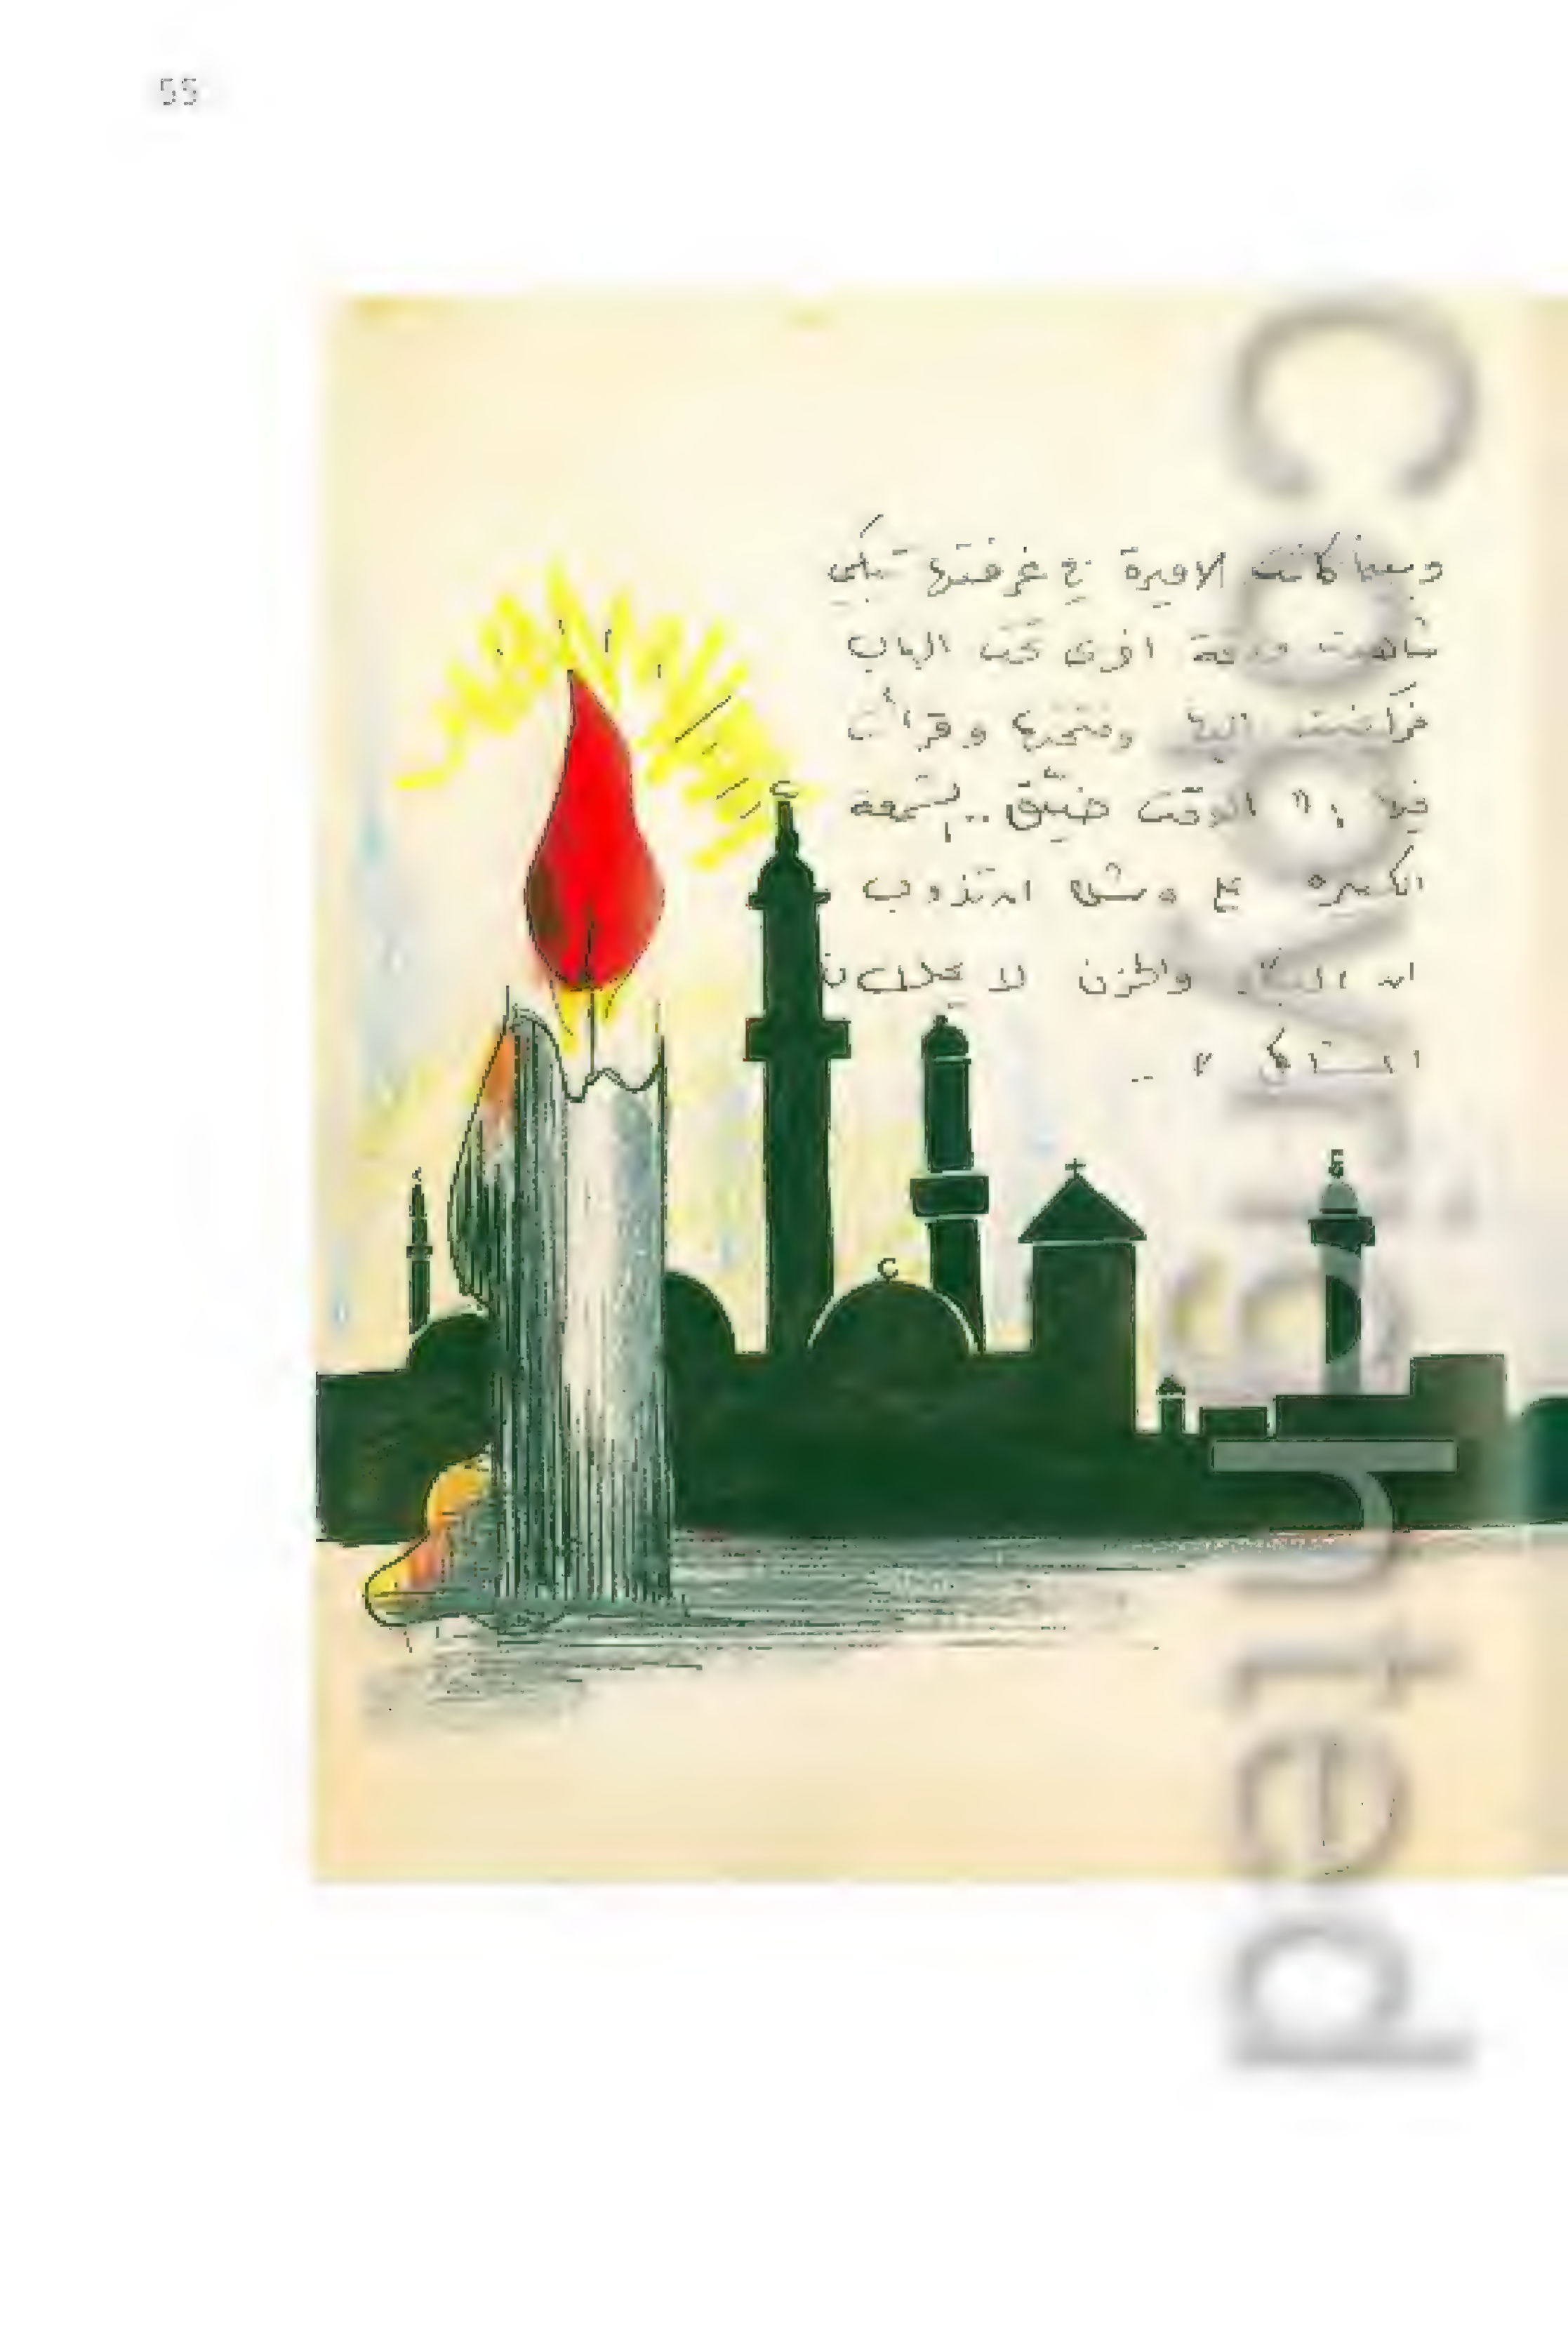 55
وبينما كانت الاميرة في غرفتها تبكي
شاهدت ورقة اخرى تحت الباب
فراكضت اليها وفتحتها وقرأت
فيها : " الوقت ضيّق .. الشمعة
الكبيرة ع وشك ان تذوب
ان البكاء والحزن لا يحلان
المشاكل " ..
Copyrighted